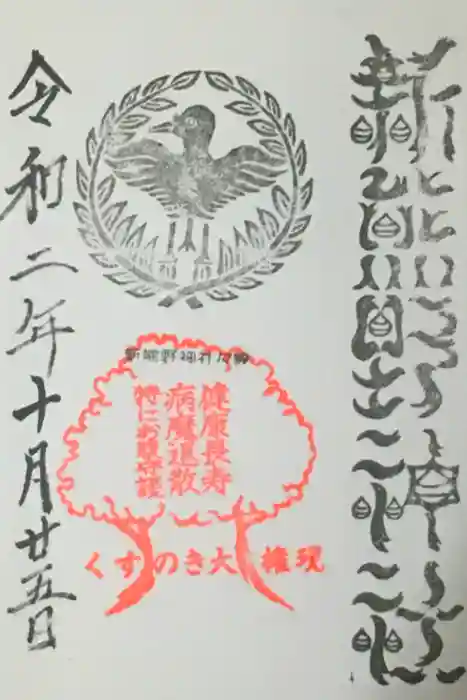 新熊野神社
新熊野神社
健康長寿
病魔退散
特にお腹守護
くすのき大権現
令和二年十月廿五日